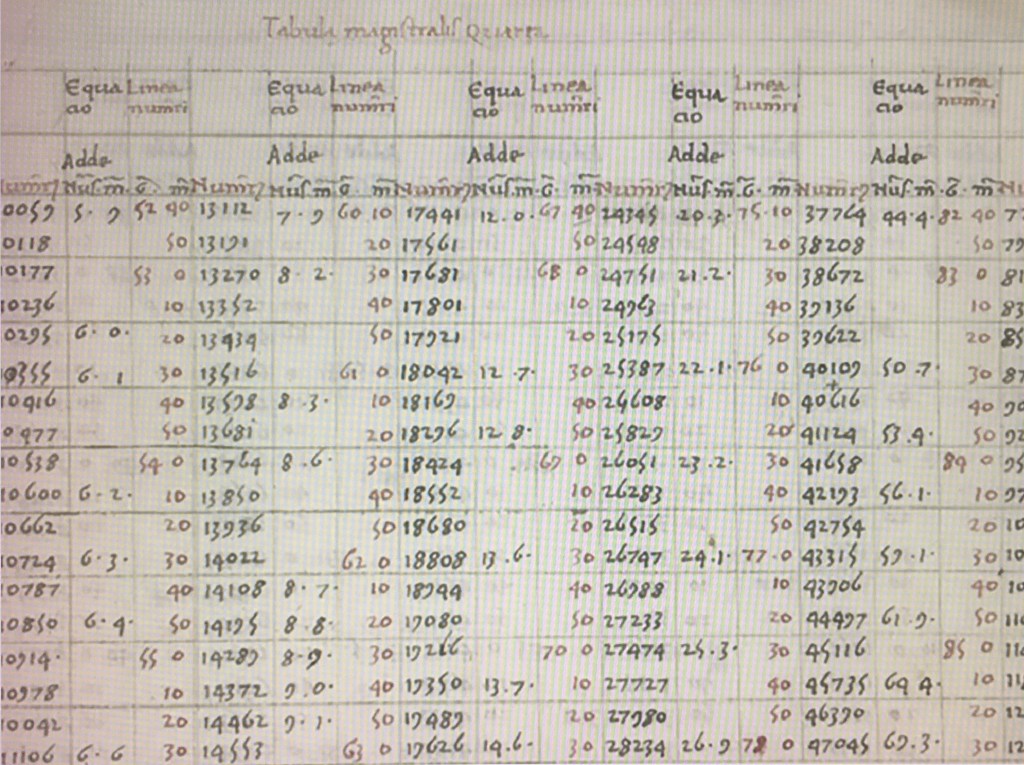 Tabula magistralis Quarta
Equa Linea Equa Linea Equa Linea Equa Linea Equa Linea
cio num̃ri cio num̃ri cio num̃ri cio num̃ri cio num̃ri
Adde Adde Adde Adde Adde
Numr̃ Nũs m̃· G̃· m̃ Numr̃ Nũs m̃ G̃· m̃ Numr̃ Nũs m̃· G̃· m̃ Numr̃ Nũs m̃ G̃· m̃ Numr̃ Nũs m̃· G̃· m̃
0059 5·9 52 40 13112 7·9 60 10 17441 12·0· 67 40 24345 20·3· 75·10 37764 44·4· 82 40 7
0118 50 13191 20 17561 50 24548 20 38208 50 79
0177 53 0 13270 8·2· 30 17681 68 0 24751 21·2· 30 38672 83 0 81
10236 10 13352 40 17801 10 24963 40 39136 10 83
0295 6·0· 20 13434 50 17921 20 25175 50 39622 20 85
0355 6·1 30 13516 61 0 18042 12·7· 30 25387 22·1· 76 0 40109 50·7· 30 87
10416 40 13598 8·3· 10 18169 40 25608 10 40616 40 90
0477 50 13681 20 18296 12 8· 50 25829 20 41124 53·4· 50 92
10538 54 0 13764 8·6· 30 18424 69 0 26051 23·2· 30 41658 84 0 95
10600 6·2· 10 13850 40 18552 10 26283 40 42193 56·1· 10 97
10662 20 13936 50 18680 20 26515 50 42754 20 10
10724 6·3· 30 14022 62 0 18808 13·6· 30 26747 24·1· 77·0 43315 59·1· 30 10
10787 40 14108 8·7· 10 18944 40 26988 10 43906 40 10
10850 6·4· 50 14195 8·8· 20 19080 50 27233 20 44497 61·9· 50 11
10914· 55 0 14284 8·9· 30 19216 70 0 27474 25·3· 30 45116 85 0 11
10978 10 14372 9·0· 40 19350 13·7· 10 27727 40 45735 64 4· 10 11
10042 20 14462 9·1· 50 19489 20 27980 50 46390 20 12
11106 6·6 30 14553 63 0 19626 14·6· 30 28234 26·9 78 0 47045 69·3· 30 12